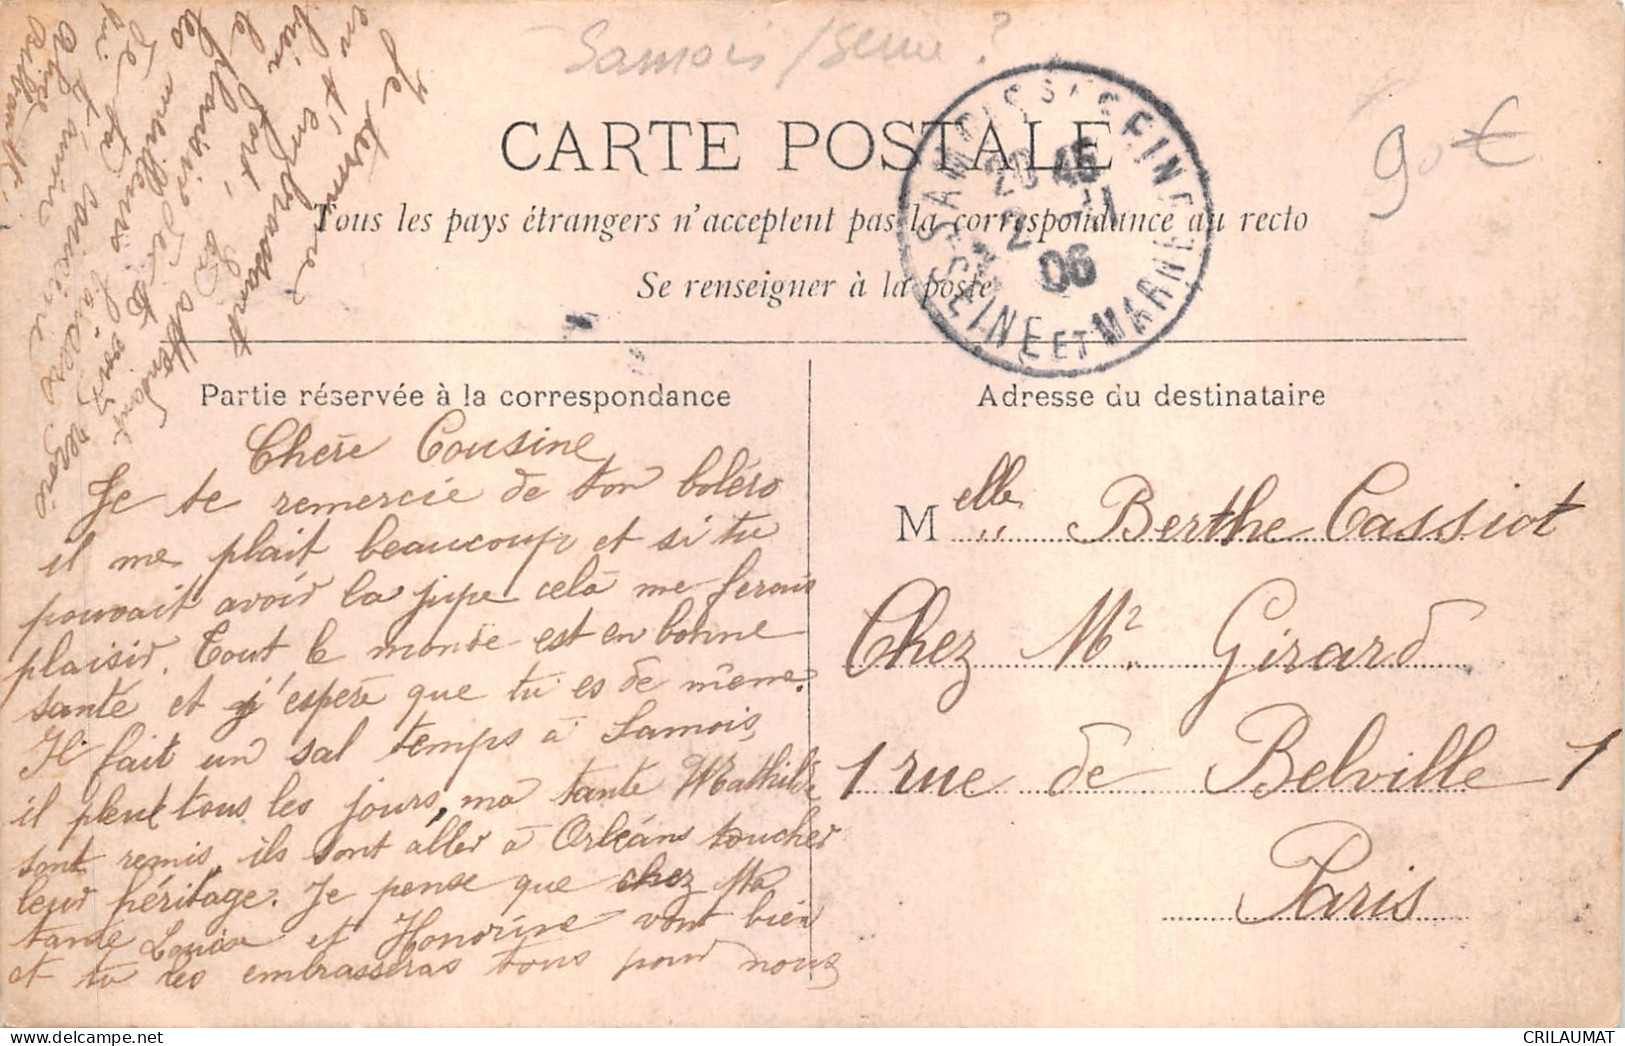 Samois/Seine ?
90 €
CARTE POSTALE
Tous les pays étrangers n'acceptent pas la correspondance au recto
Se renseigner à la poste
SAMOIS S/ SEINE
20 45
2 -11
06
SEINE ET MARNE
Partie réservée à la correspondance
Adresse du destinataire
Chère Cousine
Je te remercie de ton boléro
il me plait beaucoup et si tu
pouvait avoir la jupe celà me ferais
plaisir. Tout le monde est en bonne
santé et j'espère que tu es de même.
Il fait un sal temps à Samois,
il pleut tous les jours, ma tante Mathilde
sont remis, ils sont aller à Orléans toucher
leur héritage. Je pense que chez Ma
tante Louise et Honorine vont bien
et tu les embrasseras tous pour nous
Je termine
en t'embrassant
bien fort,
le plaisir de
les meilleurs
De ta cousine
qui t'aime
Alice
Melle Berthe Cassiot
Chez Mr. Girard
1 rue de Belville 1
Paris
CRILAUMAT